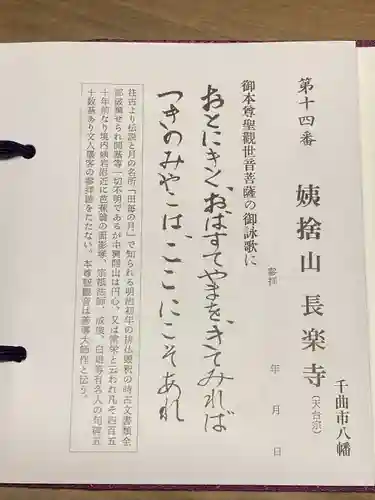 第十四番
姨捨山 長楽寺
(天台宗)
千曲市八幡
参拝 年 月 日
御本尊聖觀世音菩薩の御詠歌に
おとにきくおばすてやまをきてみれば
つきのみやこはここにこそあれ
往古より伝説と月の名所「田毎の月」で知られる明治初年の排仏毀釈の時古文書類全
部破棄せられ開基等一切不明であるが中興開山は円心、又は常栄と云われ凡そ四百五
十年前なり境内姨岩附近に芭蕉翁の面影塚、宗祇法師、成美、白雄等有名人の句碑五
十数基あり文人墨客の参拝跡をたたない。本尊聖觀音は善導大師作と伝う。